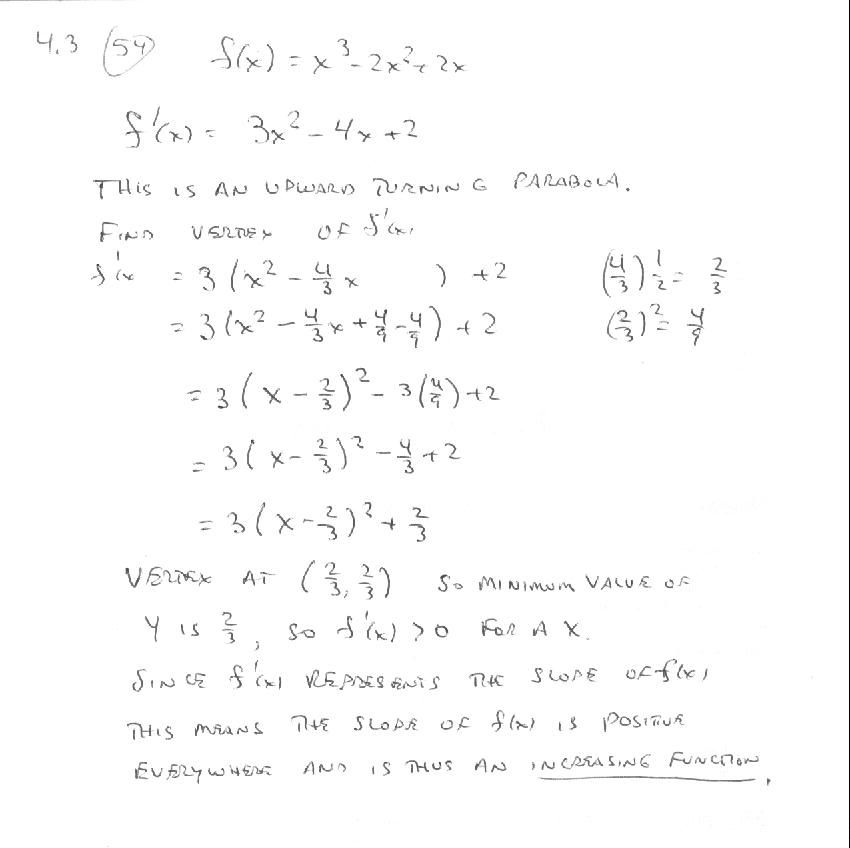 4.3 (54) f(x) = x³ - 2x² + 2x
f'(x) = 3x² - 4x + 2
THIS IS AN UPWARD TURNING PARABOLA.
FIND VERTEX OF f'(x)
f'(x = 3(x² - 4/3 x ) + 2 (4/3) 1/2 = 2/3
= 3(x² - 4/3 x + 4/9 - 4/9) + 2 (2/3)² = 4/9
= 3(x - 2/3)² - 3(4/9) + 2
= 3(x - 2/3)² - 4/3 + 2
= 3(x - 2/3)² + 2/3
VERTEX AT (2/3, 2/3) SO MINIMUM VALUE OF
Y IS 2/3, SO f'(x) > 0 FOR A X.
SINCE f'(x) REPRESENTS THE SLOPE OF f(x)
THIS MEANS THE SLOPE OF f(x) IS POSITIVE
EVERYWHERE AND IS THUS AN INCREASING FUNCTION.